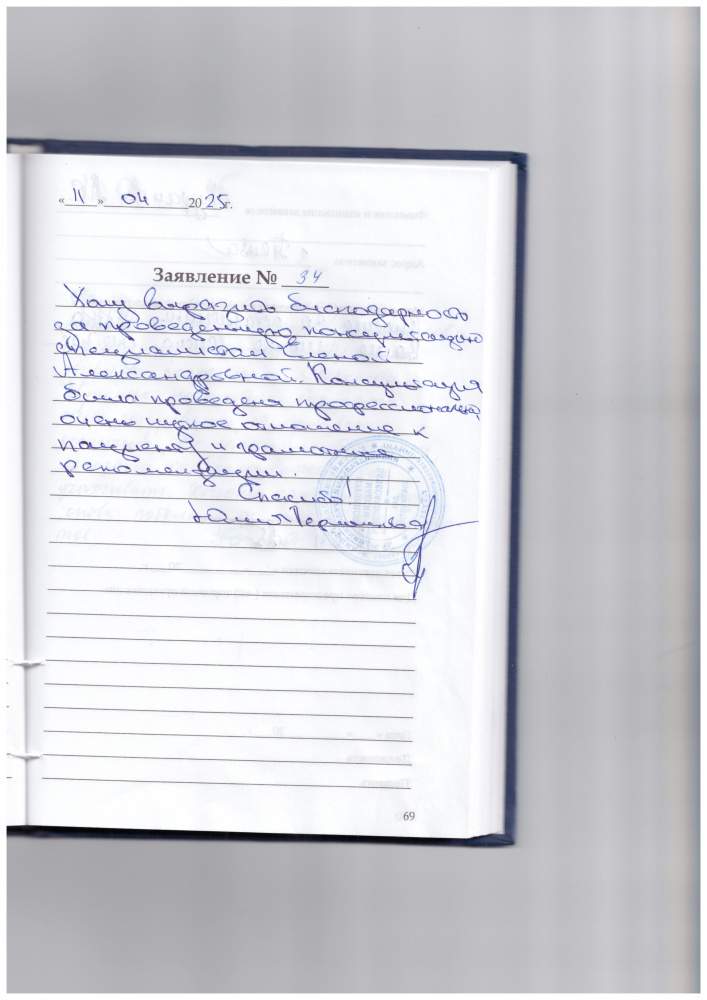 « 11 » 04 2025г.
Заявление № 34
Хочу выразить благодарность
за проведенную консультацию
специалистом Еленой
Александровной. Консультация
была проведена профессионально,
очень чуткое отношение к
пациенту и грамотные
рекомендации.
Спасибо!
Юлия
69